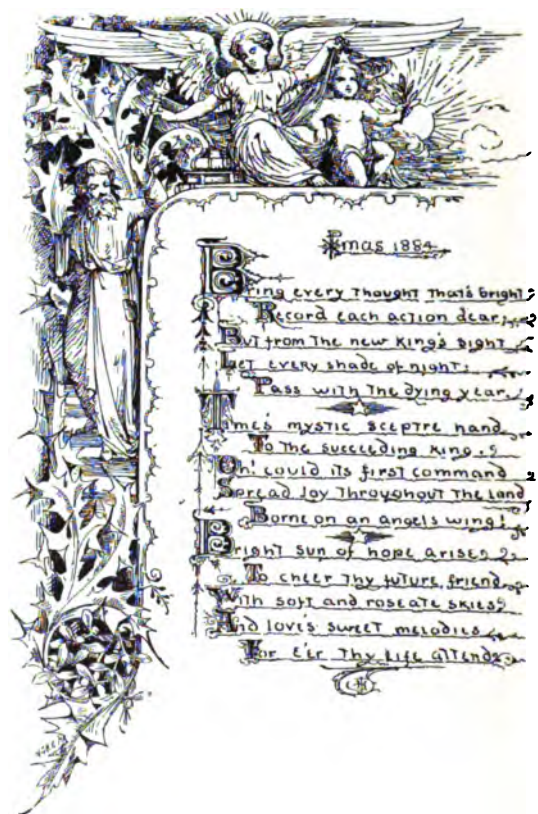 Xmas 1884
Bring every thought that's bright,
Record each action dear;
But from the new King's sight
Let every shade of night;
Pass with the dying year.
Time's mystic sceptre hand
To the succeeding King.
Oh! could its first command
Spread joy throughout the land
Borne on an angels wing!
Bright sun of hope arises
To cheer thy future, friend
With soft and roseate skies,
And love's sweet melodies
For e'er thy life attend.